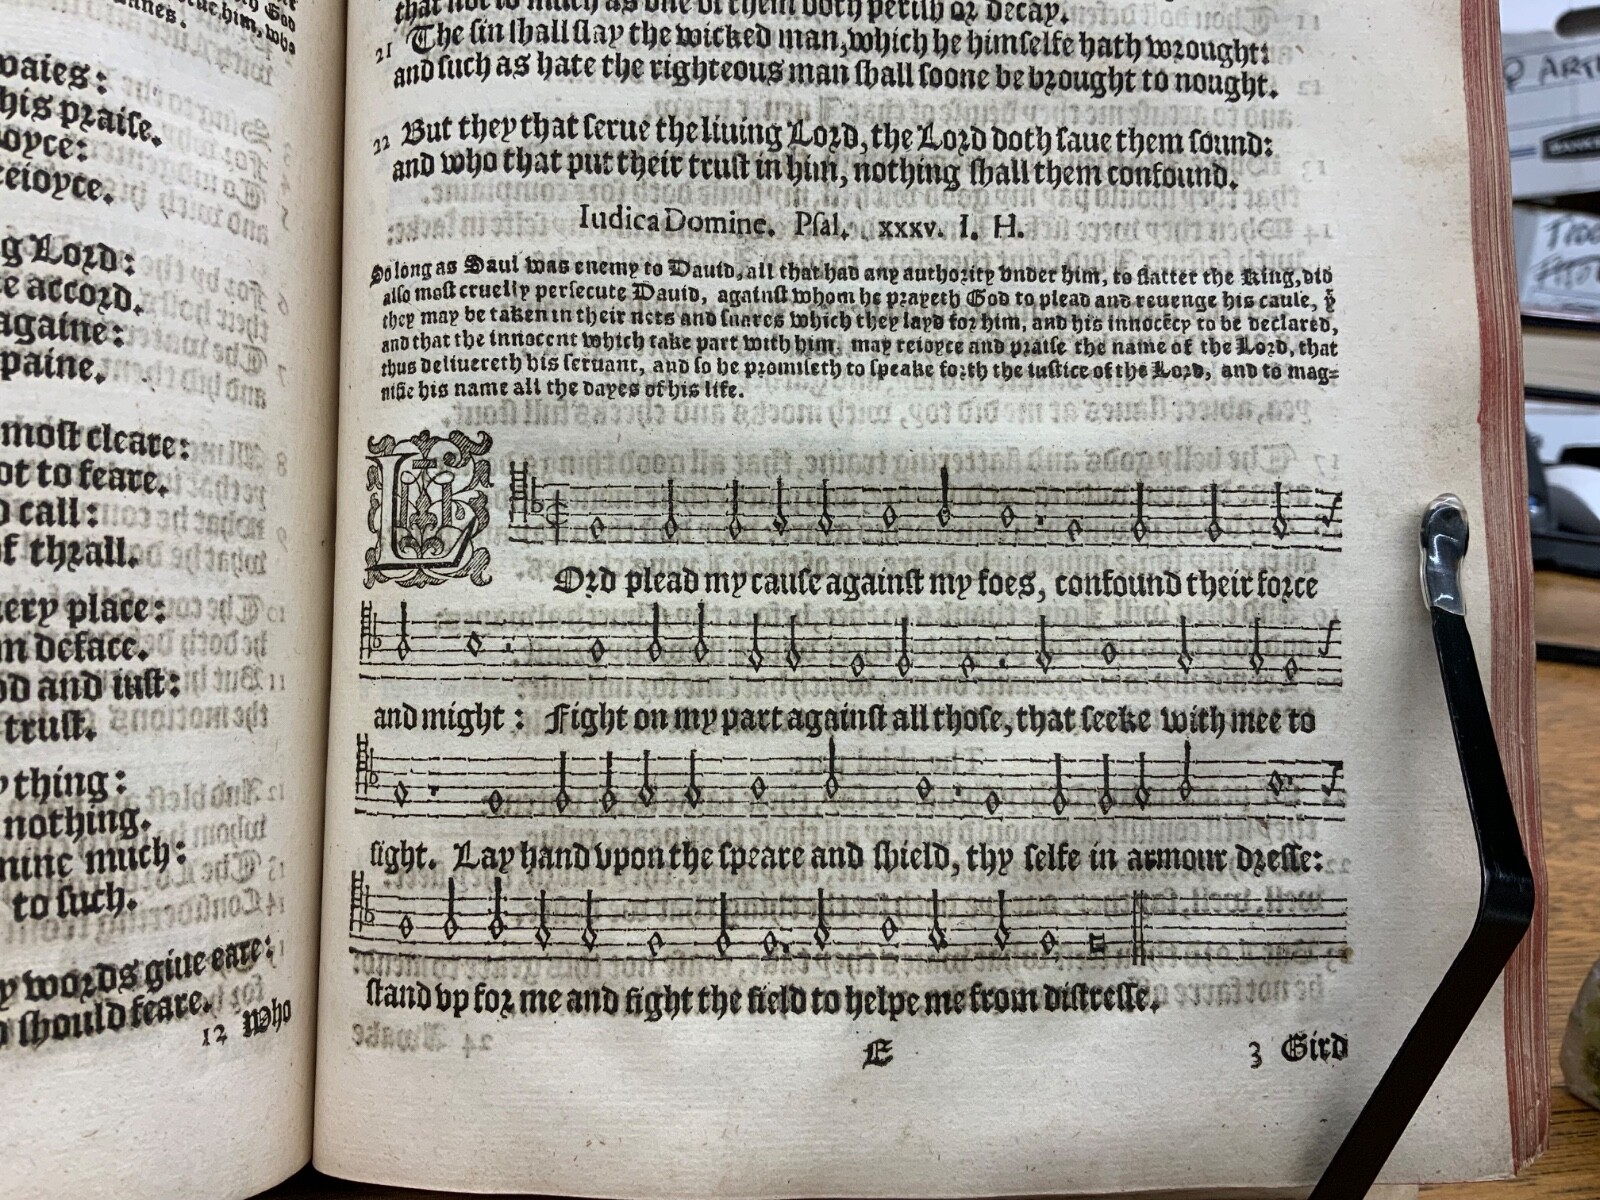 waies:
his praise.
oyce:
reioyce.
g Lord:
e accord.
againe:
paine.
most cleare:
ot to feare.
d call:
f thrall.
ery place:
m deface.
od and iust:
trust.
y thing:
nothing.
mine much:
to such.
y words giue eare:
should feare.
12 Who
that not so much as one of them doth perish or decay.
21 The sin shall slay the wicked man, which he himselfe hath wrought:
and such as hate the righteous man shall soone be brought to nought.
22 But they that serue the liuing Lord, the Lord doth saue them sound:
and who that put their trust in him, nothing shall them confound.
Iudica Domine. Psal. xxxv. I. H.
So long as Saul was enemy to Dauid, all that had any authority vnder him, to flatter the King, did
also most cruelly persecute Dauid, against whom he prayeth God to plead and reuenge his cause, ẙ
they may be taken in their nets and snares which they layd for him, and his innocẽcy to be declared,
and that the innocent which take part with him, may reioyce and praise the name of the Lord, that
thus deliuereth his seruant, and so he promiseth to speake forth the iustice of the Lord, and to mag=
nifie his name all the dayes of his life.
LOrd plead my cause against my foes, confound their force
and might: Fight on my part against all those, that seeke with mee to
fight. Lay hand vpon the speare and shield, thy selfe in armour dresse:
stand vp for me and fight the field to helpe me from distresse.
E
3 Gird